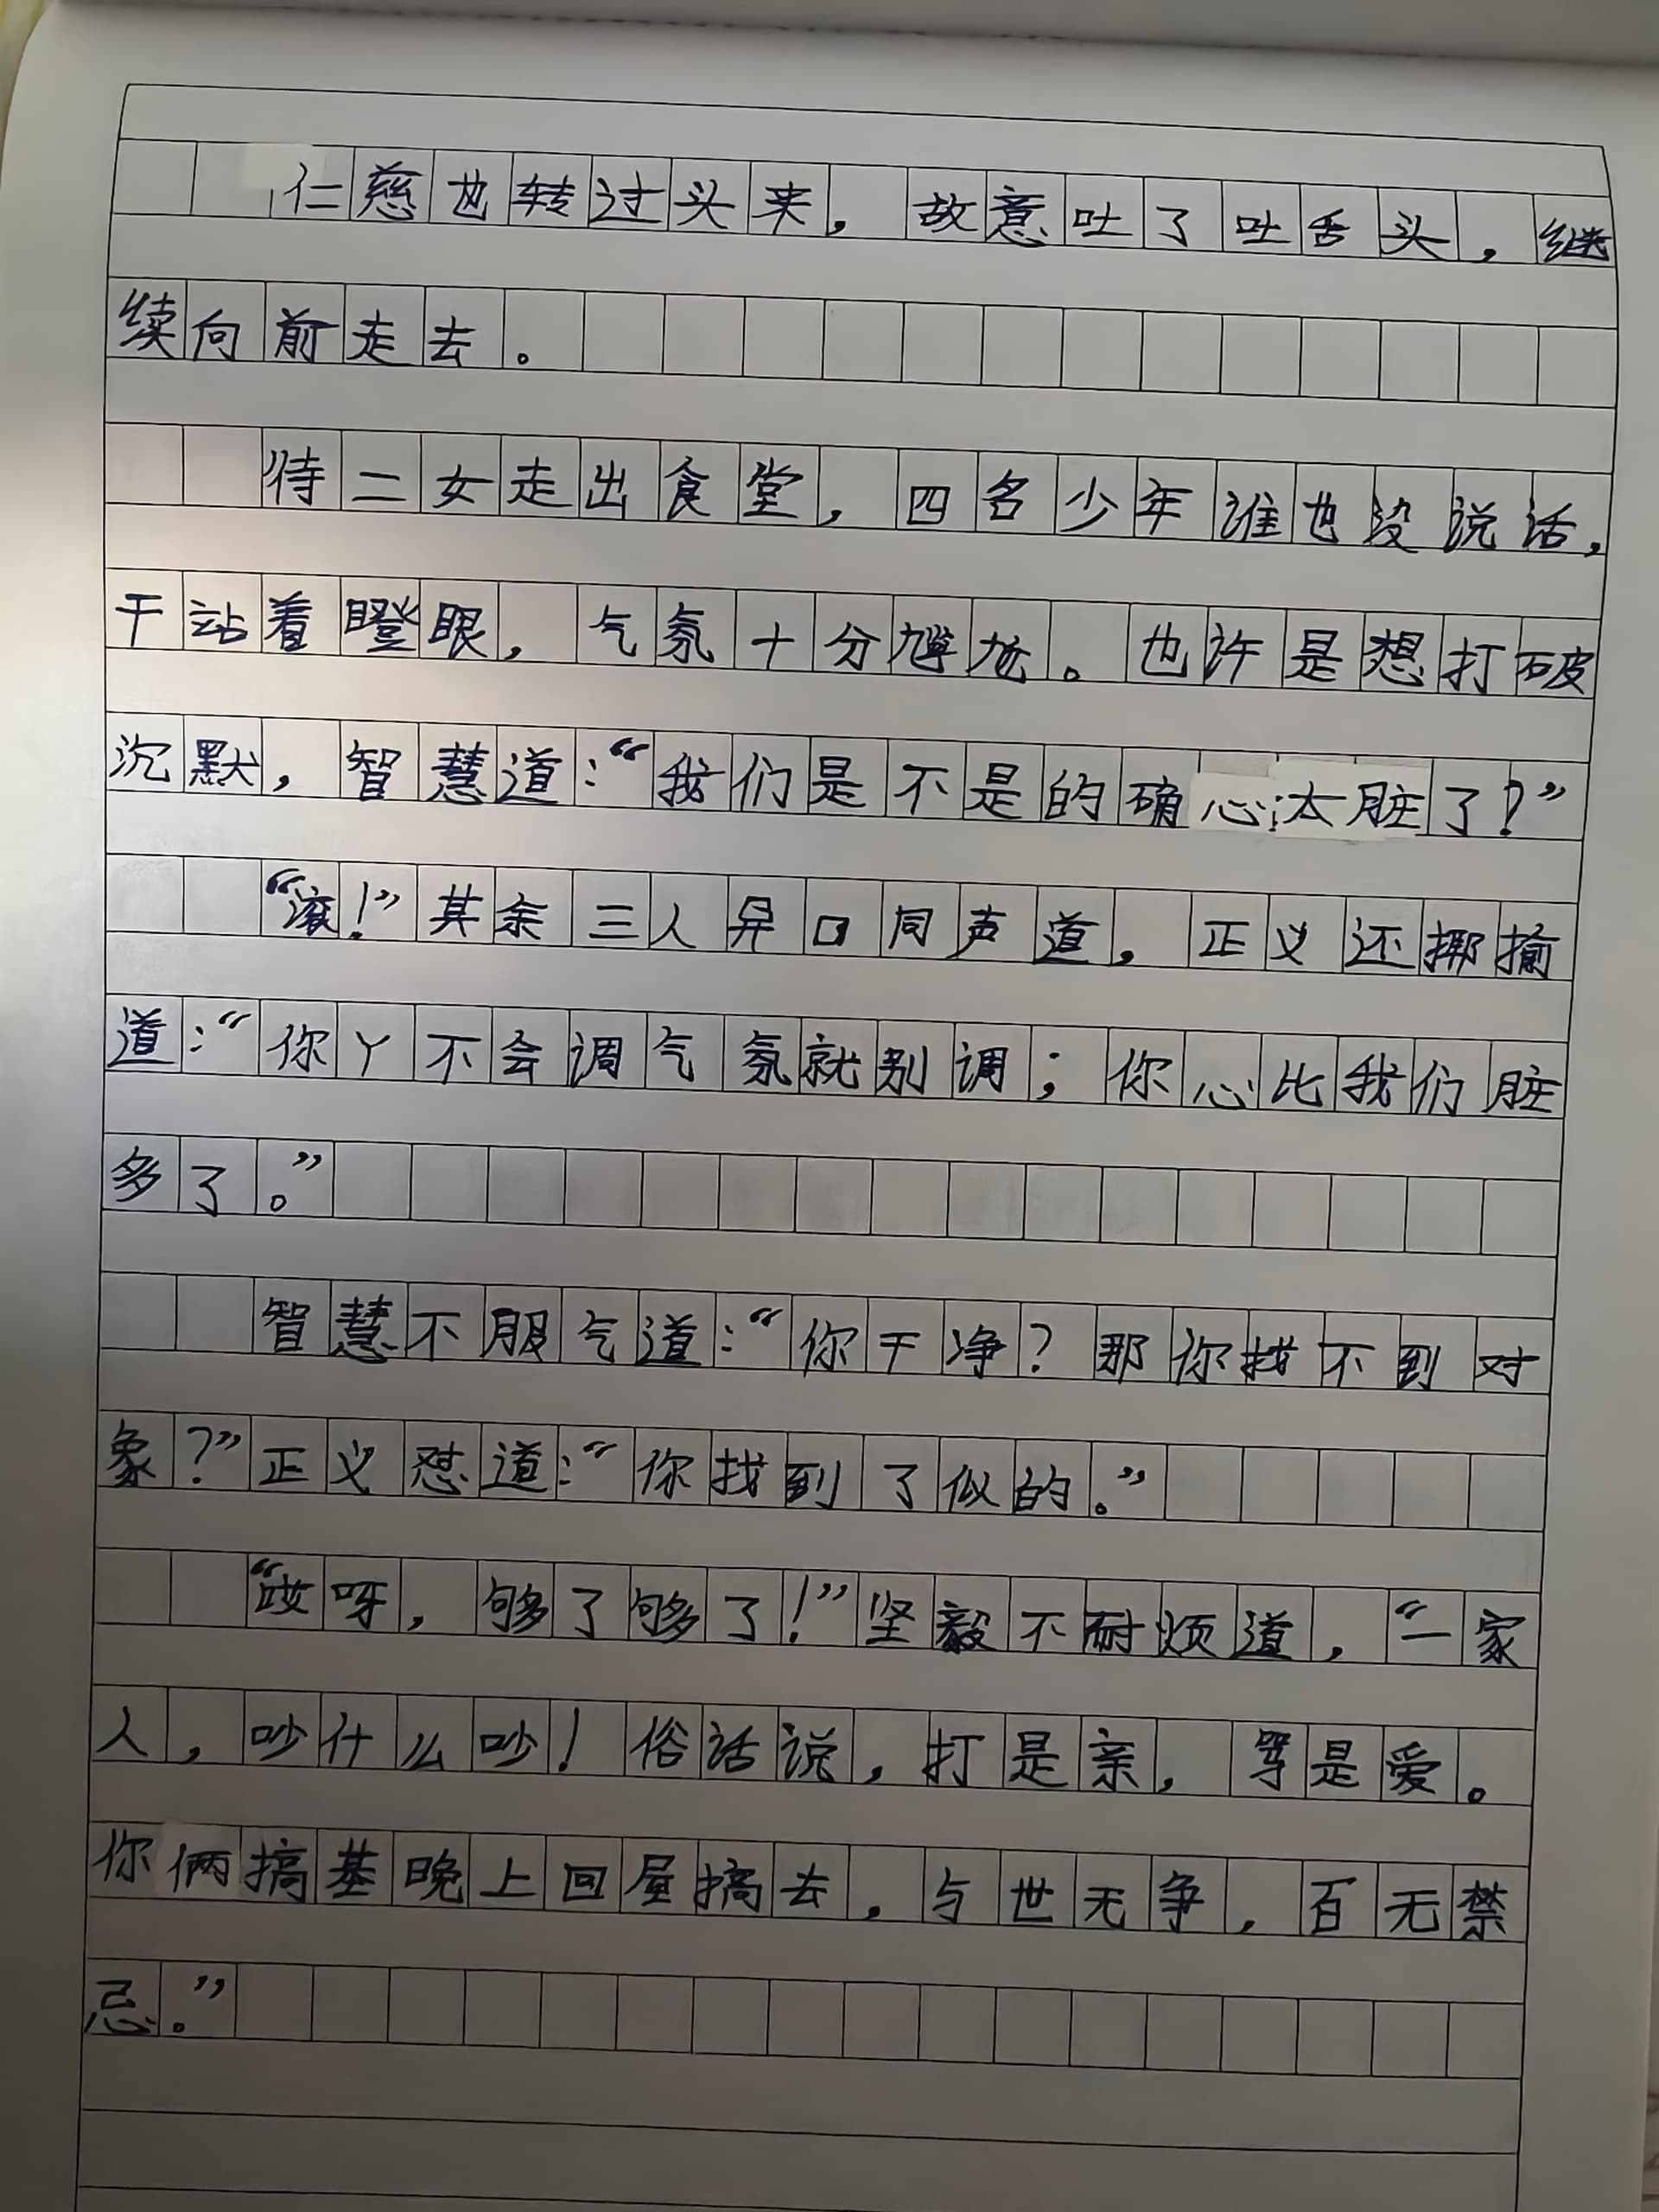 仁慈也转过头来，故意吐了吐舌头，继
续向前走去。
待二女走出食堂，四名少年谁也没说话，
干站着瞪眼，气氛十分尴尬。也许是想打破
沉默，智慧道：“我们是不是的确心太脏了？”
“滚！”其余三人异口同声道，正义还揶揄
道：“你丫不会调气氛就别调；你心比我们脏
多了。”
智慧不服气道：“你干净？那你找不到对
象？”正义怼道：“你找到了似的。”
“哎呀，够了够了！”坚毅不耐烦道，“一家
人，吵什么吵！俗话说，打是亲，骂是爱。
你俩搞基晚上回屋搞去，与世无争，百无禁
忌。”